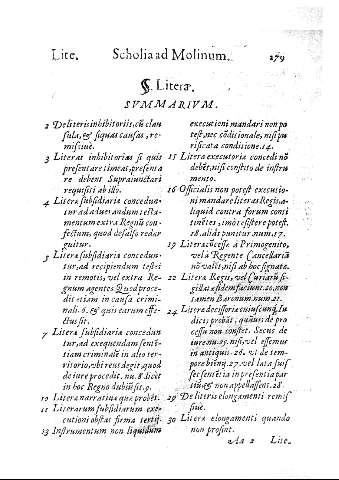 Lite. Scholia ad Molinum. 279
§. Literæ
SVMMARIVM.
2 De literis inhibitoriis, cũ clau
sula, & si quas causas, re-
missiuè.
3 Literas inhibitorias si quis
præsentare timeat, præsenta
re debent Supraiunctarij
requisiti ab illo.
4 Litera subsidiaria concedun-
tur ad aduerandum testa-
mentum extra Regnũ con-
fectum, quod desaforo redar
guitur.
5 Litera subsidiaria concedun-
tur, ad recipiendum testes
in remotis, vel extra Re-
gnum agentes Quod proce-
dit etiam in causa crimi-
nali. 6. & quis earum effe-
ctus sit.
7 Litera subsidiaria concedun
tur, ad exequendam senten-
tiam criminalē in alio ter-
ritorio, vbi reus degit, quod
de iure procedit. nu. 8. licet
in hoc Regno dubiũ sit. 9.
10 Litera narratiua quæ probēt.
11 Literarum subsidiarum exe-
cutioni obstat firma tertij.
13 Instrumentum non liquidum
executioni mandari non po
test, nec cõditionale, nisi pu
rificata conditione. 14.
15 Litera executoria concedi nõ
debēt, nisi constito de instru
mento.
16 Officialis non potest executio-
ni mandare literas Regis, a-
liquid contra forum conti
nentes, imò resistere potest.
18. aliàs punitur. num. 17.
19 Literæ cõcessæ à Primogenito,
vel à Regente Cancellariũ
nõ valēt, nisi ab hoc signatæ.
22 Litera Regis, vel Curiarũ si-
gillatæ fidem faciunt. 20. non
tamen Baronum num. 21.
24 Litera decissoria cuiuscunq; Iu
dicis probãt, quãuis de pro
cessu non constet. Secus de
iure. nu. 25. nisi, vel essemus
in antiquis. 26. vl de tem-
pore breui. 27. vel lata fuis
set sentētia in præsentia par
tiũ, & non appellassent. 28.
29 De literis elongamenti remis
siuè.
30 Litera elongamenti quando
non prosint.
Aa 2 Lite.